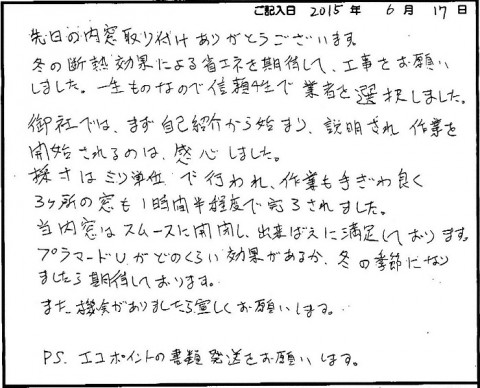 ご記入日 2015 年 6 月 17 日
先日の内窓取り付けありがとうございます。
冬の断熱効果による省エネを期待して、工事をお願い
しました。一生ものなので信頼性で業者を選択しました。
御社では、まず自己紹介から始まり、説明され作業を
開始されるのは、感心しました。
採寸はミリ単位で行われ、作業も手ぎわ良く
3ヶ所の窓も1時間半程度で完了されました。
当内窓はスムースに開閉し、出来ばえに満足しております。
プラマードUがどのくらい効果があるか、冬の季節になり
ましたら期待しております。
また、機会がありましたら宜しくお願いします。
PS. エコポイントの書類発送をお願いします。